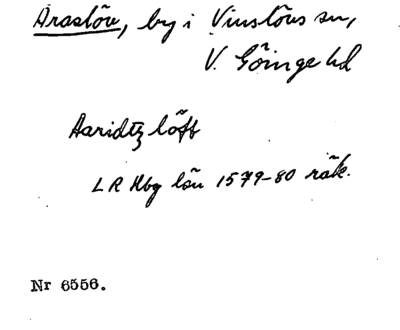 Araslöv, by i Vinslövs sn,
V. Göinge hd
Aaridtz löff
LR Hbg län 1579-80 räk.
Nr 6556.